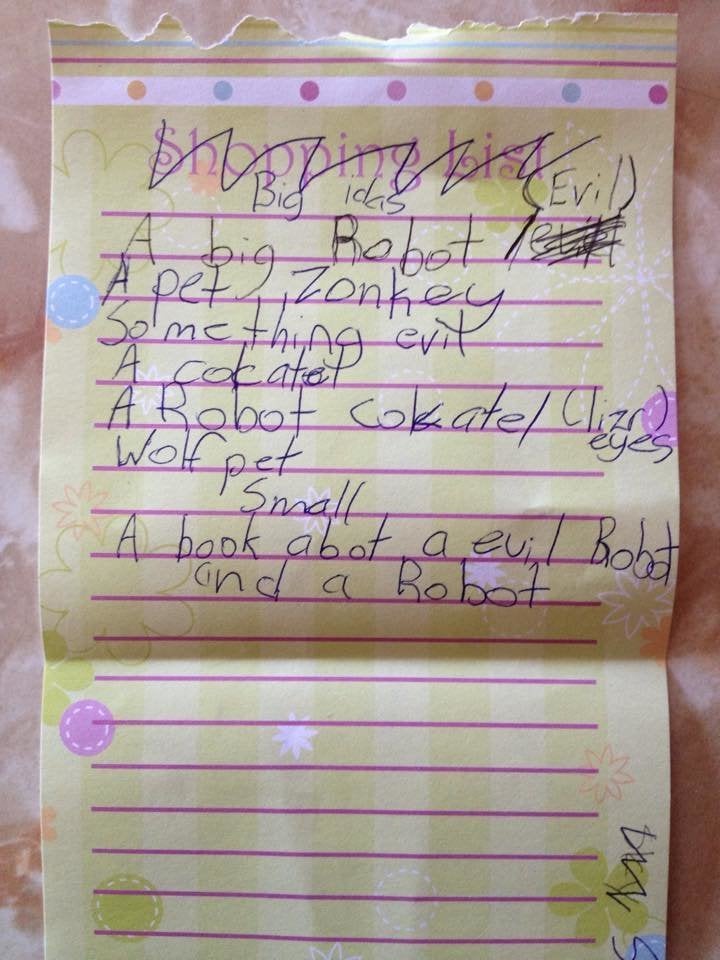 Shopping List
Big idas (Evil)
A big Robot
A pet, Zonkey
Something evil
A cokatel
A Robot cokatel (lizr)
eyes
Wolf pet
Small
A book abot a evil Robot
and a Robot